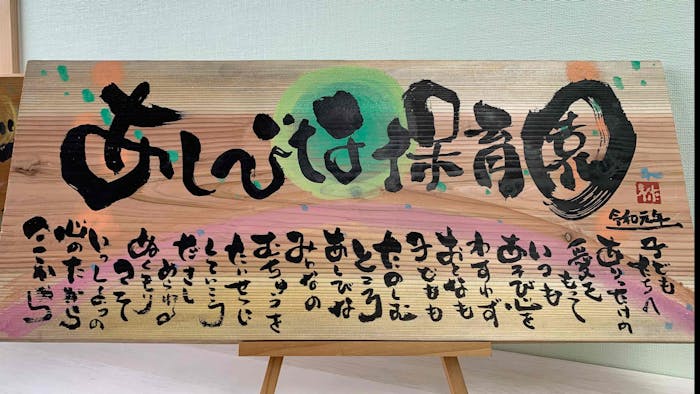 あしびな保育園
令和元年
子ども
たちへ
ありったけの
愛を
もって
いつも
あそび心を
わすれず
おとなも
子どもも
たのしむ
ところ
あしびな
みんなの
むちゅうを
たいせつに
していこう
だきし
められる
ぬくもり
こそ
いっしょうの
心のたから
ここから